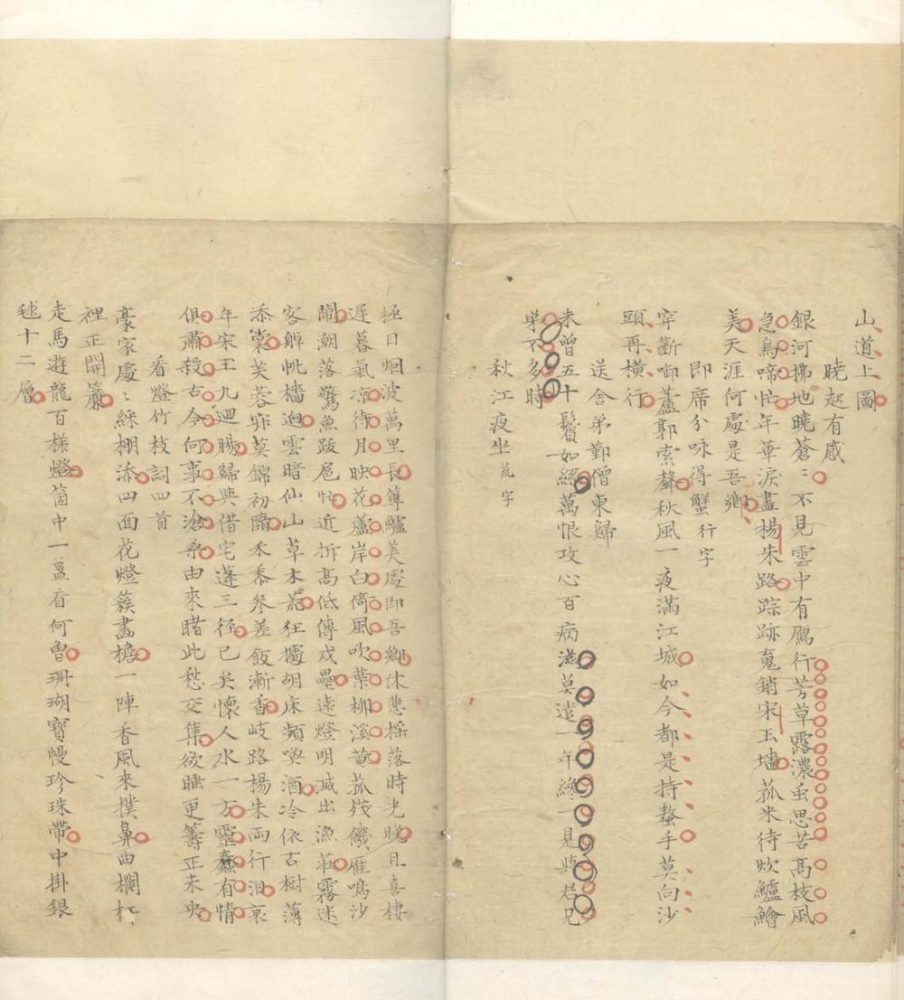 山道上圖
曉起有感
銀河拂地曉蒼〻不見雲中有鴈行芳草露濃虫思苦高枝風
急鳥啼忙年華淚盡楊朱路踪跡魂銷宋玉墻菰米待炊鱸鱠
美天涯何處是吾鄉
即席分咏得蟹行字
穿斷卸蘆郭索聲秋風一夜滿江城如今都是持螯手莫向沙
頭再橫行
送舍弟勤僧東歸
未曾五十鬢如絲萬恨攻心百病滋莫遠一年終一見與君兄
弟不多時
秋江夜坐
極目烟波萬里長蓴鱸美處即吾鄉休悲搖落時光晚且喜棲
遲暮氣凉待月映花蘆岸白倚風吹葉柳溪黃菰殘饑雁鳴沙
闊潮落驚魚跋扈忙近析高低傳戍壘遠燈明滅出漁莊霧迷
客艇帆檣迥雲暗仙山草木荒狂擱胡床頻喚酒冷依古樹薄
添裳芙蓉醉莫錦初隔禾黍參差飯漸香岐路楊朱兩行泪哀
年宋玉九迴腸歸與借宅蓬三徑已矣懷人水一方靈蠢有情
俱肅殺古今何事不滄桑由來睹此愁交集欲睡更籌正未央
看燈竹枝詞四首
豪家處〻綵棚添四面花燈簇畫檐一陣香風來撲鼻曲欄杠
裡正開簾
走馬遊龍百樣燈箇中一盞看何曾珊瑚寶幔珍珠帶中掛銀
毬十二層